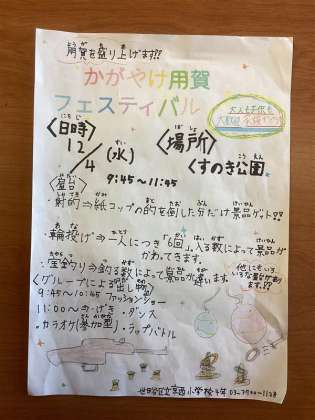 用賀を盛り上げます!!
かがやけ用賀
フェスティバル
大人も子供も
大歓迎
〈日時〉
にちじ
12/4(水)
すい
9:45〜11:45
〈場所〉
ばしょ
くすのき公園
こうえん
〈屋台〉
やたい
・射的⇒紙コップの的を倒した分だけ景品ゲット!!
・輪投げ⇒一人につき「6回」、入る数によって景品が
かわってきます。
・宝釣り⇒釣る数によって景品が違います。
他にもいろいろな屋台があります!!
〈グループによる出し物〉
9:45〜10:45 ファッションショー
11:00〜
・ダンス
・カラオケ(参加型)・ラップバトル
世田谷区立京西小学校4年